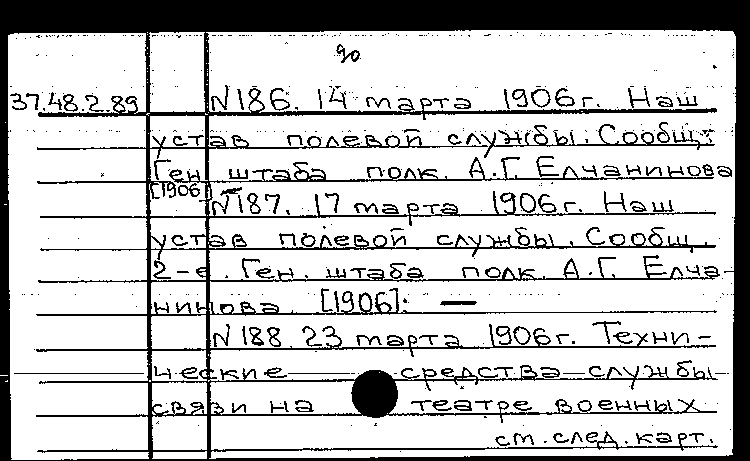 90
37.48.2.89 N186. 14 марта 1906г. Наш
устав полевой службы. Сообщ.
Ген. штаба полк. А.Г. Елчанинова
[1906] —
N187. 17 марта 1906г. Наш
устав полевой службы. Сообщ.
2-е. Ген. штаба полк. А.Г. Елча-
нинова. [1906]: —
N188. 23 марта 1906г. Техни-
ческие средства службы
связи на театре военных
см. след. карт.